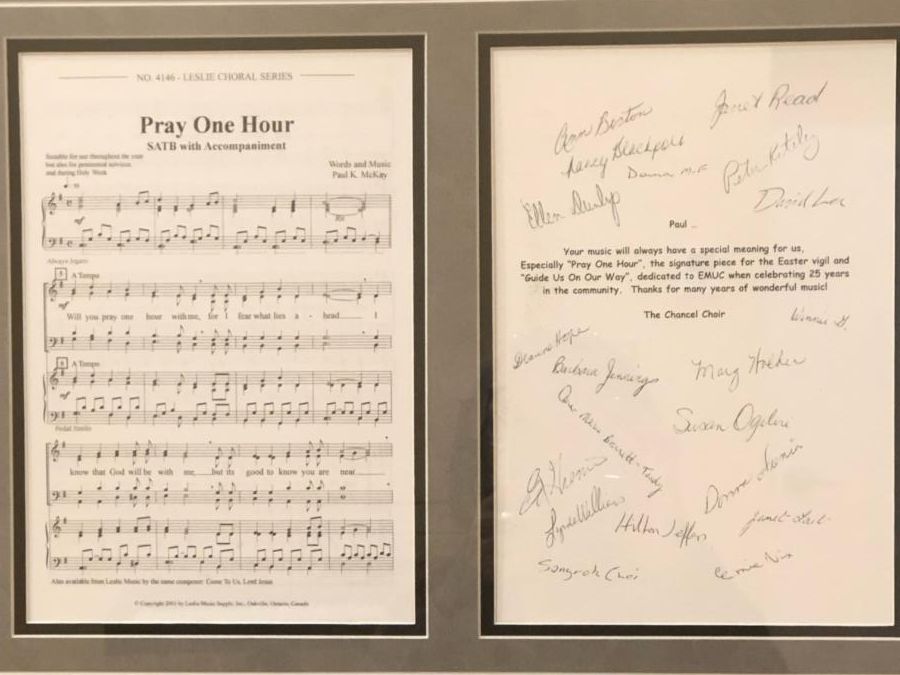 NO. 4146 - LESLIE CHORAL SERIES
Pray One Hour
SATB with Accompaniment
Suitable for use throughout the year
but also for penitential services
and during Holy Week
Words and Music
Paul K. McKay
mf
Rit
Always legato
5 A Tempo
mf
Will you pray one hour with me, for I fear what lies a - head I
5 A Tempo
Pedal Similar
know that God will be with me, but its good to know you are near
Also available from Leslie Music by the same composer: Come To Us, Lord Jesus
© Copyright 2001 by Leslie Music Supply, Inc., Oakville, Ontario, Canada
Ann Boston
Janet Read
Nancy
Donna M.F
Peter
Ellen Dunlop
David Lee
Paul ...
Your music will always have a special meaning for us,
Especially "Pray One Hour", the signature piece for the Easter vigil and
"Guide Us On Our Way", dedicated to EMUC when celebrating 25 years
in the community. Thanks for many years of wonderful music!
The Chancel Choir
Winnie G.
Deanne Hope
Barbara Jennings
Marg
Susan Ogilvie
Donna
Lynda Williams
Hilton Jeffers
Janet
Choi